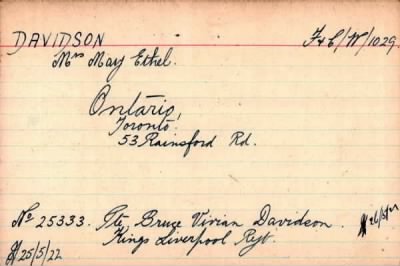 DAVIDSON F&E/W/1029.
Mrs May Ethel.
Ontario,
Toronto.
53 Rainsford Rd.
No 25333. Pte, Bruce Vivian Davidson.
Kings Liverpool Rgt.
25/5/22